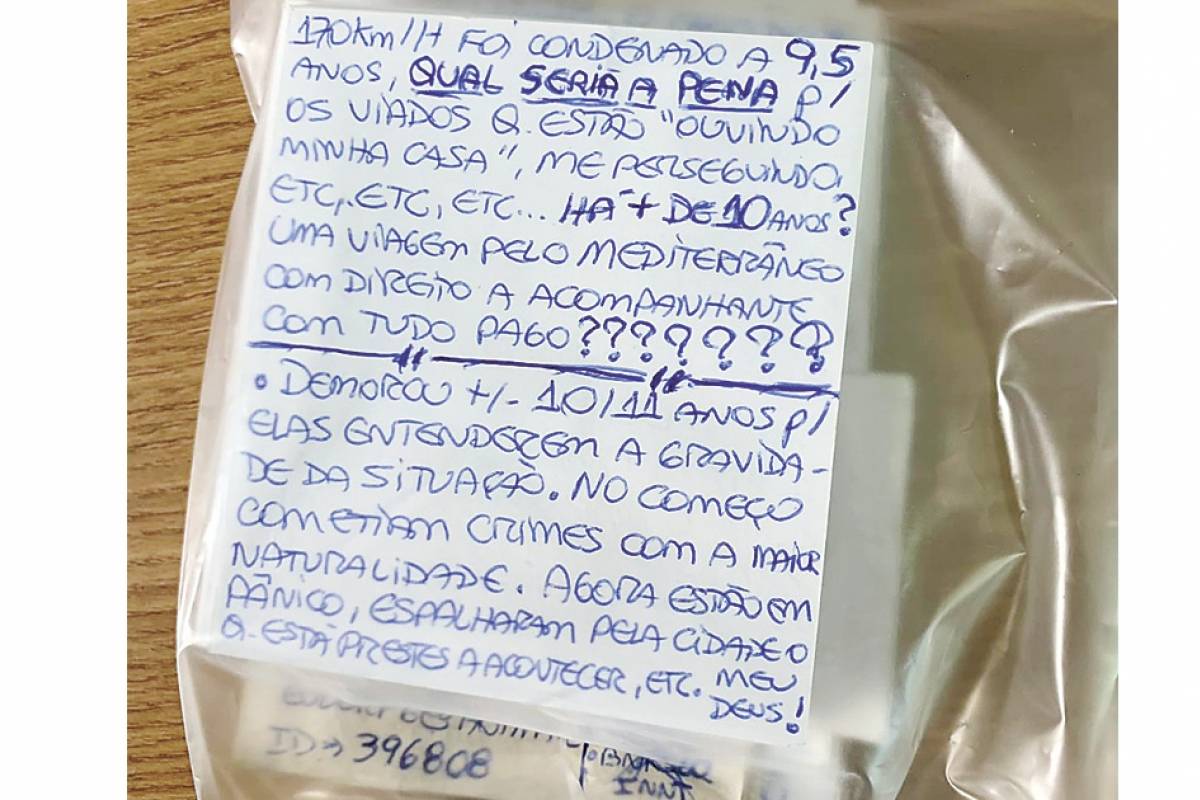 170Km/H FOI CONDENADO A 9,5
ANOS, QUAL SERIA A PENA P/
OS VIADOS Q. ESTÃO "OUVINDO
MINHA CASA", ME PERSEGUINDO,
ETC, ETC, ETC... HÁ + DE 10 ANOS?
UMA VIAGEM PELO MEDITERRÂNEO
COM DIREITO A ACOMPANHANTE
COM TUDO PAGO???????
• DEMOROU +/- 10/11 ANOS P/
ELAS ENTENDEREM A GRAVIDA-
DE DA SITUAÇÃO. NO COMEÇO
COMETIAM CRIMES COM A MAIOR
NATURALIDADE. AGORA ESTÃO EM
PÂNICO, ESPALHARAM PELA CIDADE O
Q. ESTÁ PRESTES A ACONTECER, ETC. MEU
DEUS!
ID → 396808